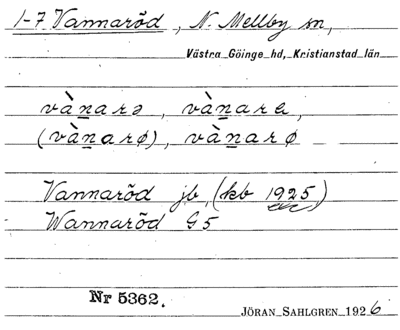 1-7 Vannaröd, N. Mellby sn,
Västra Göinge hd, Kristianstad län
vàṉarə, vàṉara,
(vàṉarø), vàṉarø
Vannaröd jb, (kb 1925)
Wannaröd G5
Nr 5362.
JÖRAN SAHLGREN 1926